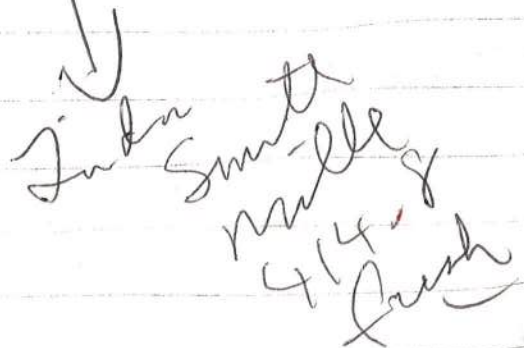 Linda
Smith
Miller
414.8
fresh